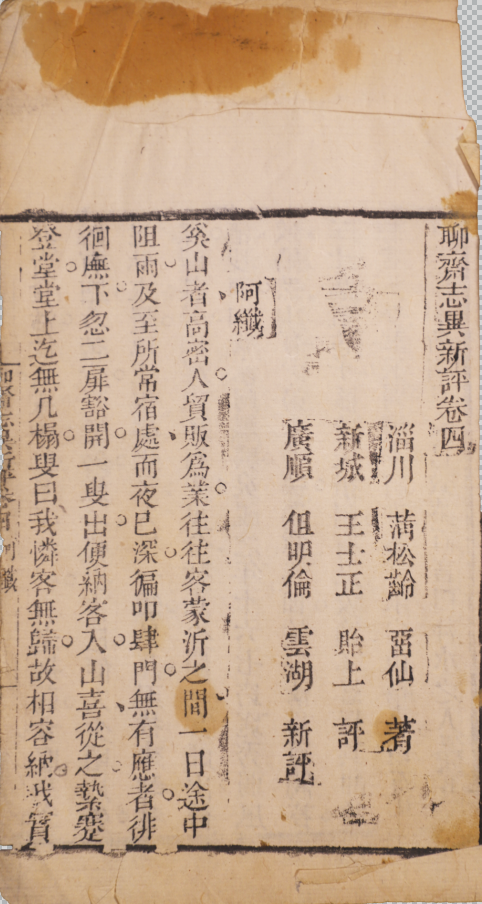 聊齋志異新評卷四
淄川 蒲松齡 畱仙 著
新城 王士正 貽上 評
廣順 但明倫 雲湖 新評
阿纖
奚山者高密人貿販爲業往往客蒙沂之間一日途中
阻雨及至所常宿處而夜已深徧叩肆門無有應者徘
徊廡下忽二扉豁開一叟出便納客入山喜從之縶蹇
登堂堂上迄無几榻叟曰我憐客無歸故相容納我實